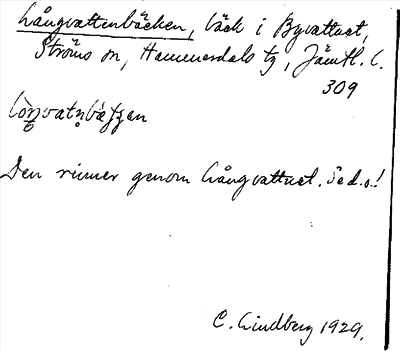 Långvattenbäcken, bäck i Byvattnet,
Ströms sn, Hammerdals tg, Jämtl. l.
309
Den rinner genom Långvattnet. Se d.o.!
C. Lindberg 1929.